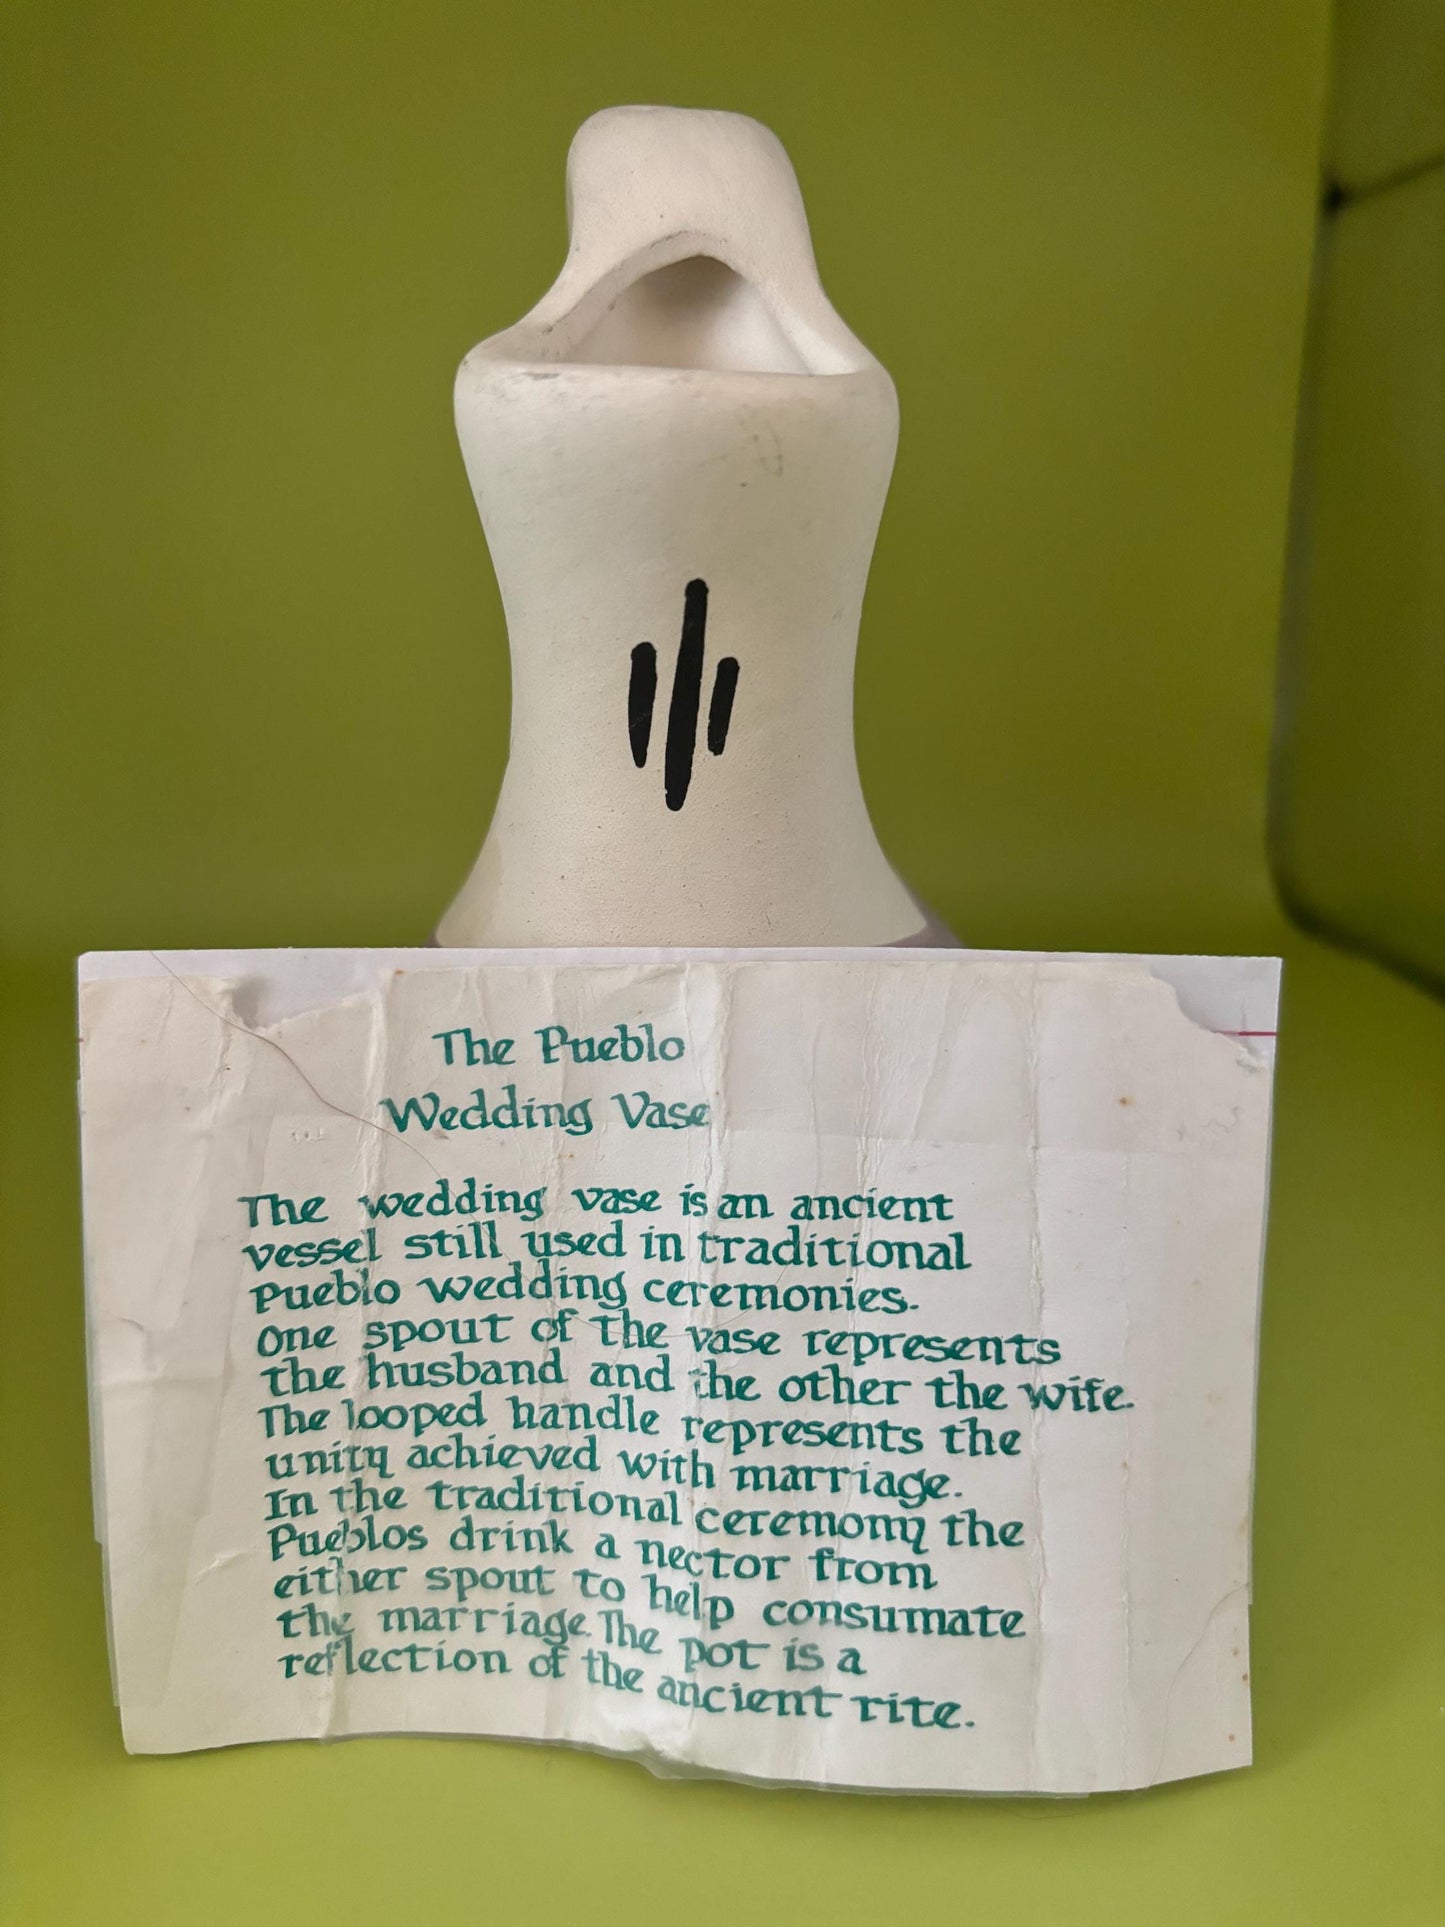 The Pueblo
Wedding Vase
The wedding vase is an ancient
vessel still used in traditional
Pueblo wedding ceremonies.
One spout of the vase represents
the husband and the other the wife.
The looped handle represents the
unity achieved with marriage.
In the traditional ceremony the
Pueblos drink a nector from
either spout to help consumate
the marriage. The pot is a
reflection of the ancient rite.